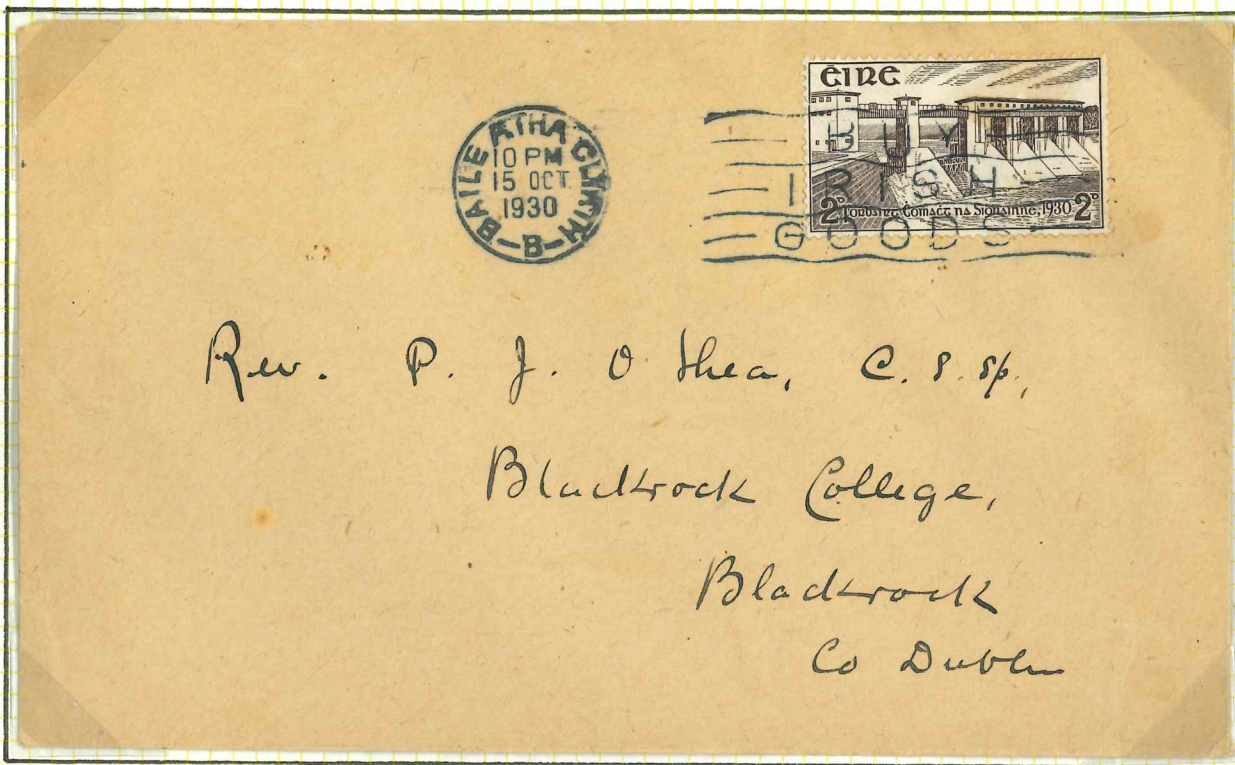 BAILE ÁTHA CLIATH
10 PM
15 OCT
1930
B
ÉIRE
BUY
IRISH
GOODS
2ᴰ Forbairt Cómhacht na Sionainne, 1930 2ᴰ
Rev. P. J. O'Shea, C.S.Sp.,
Blackrock College,
Blackrock
Co Dublin